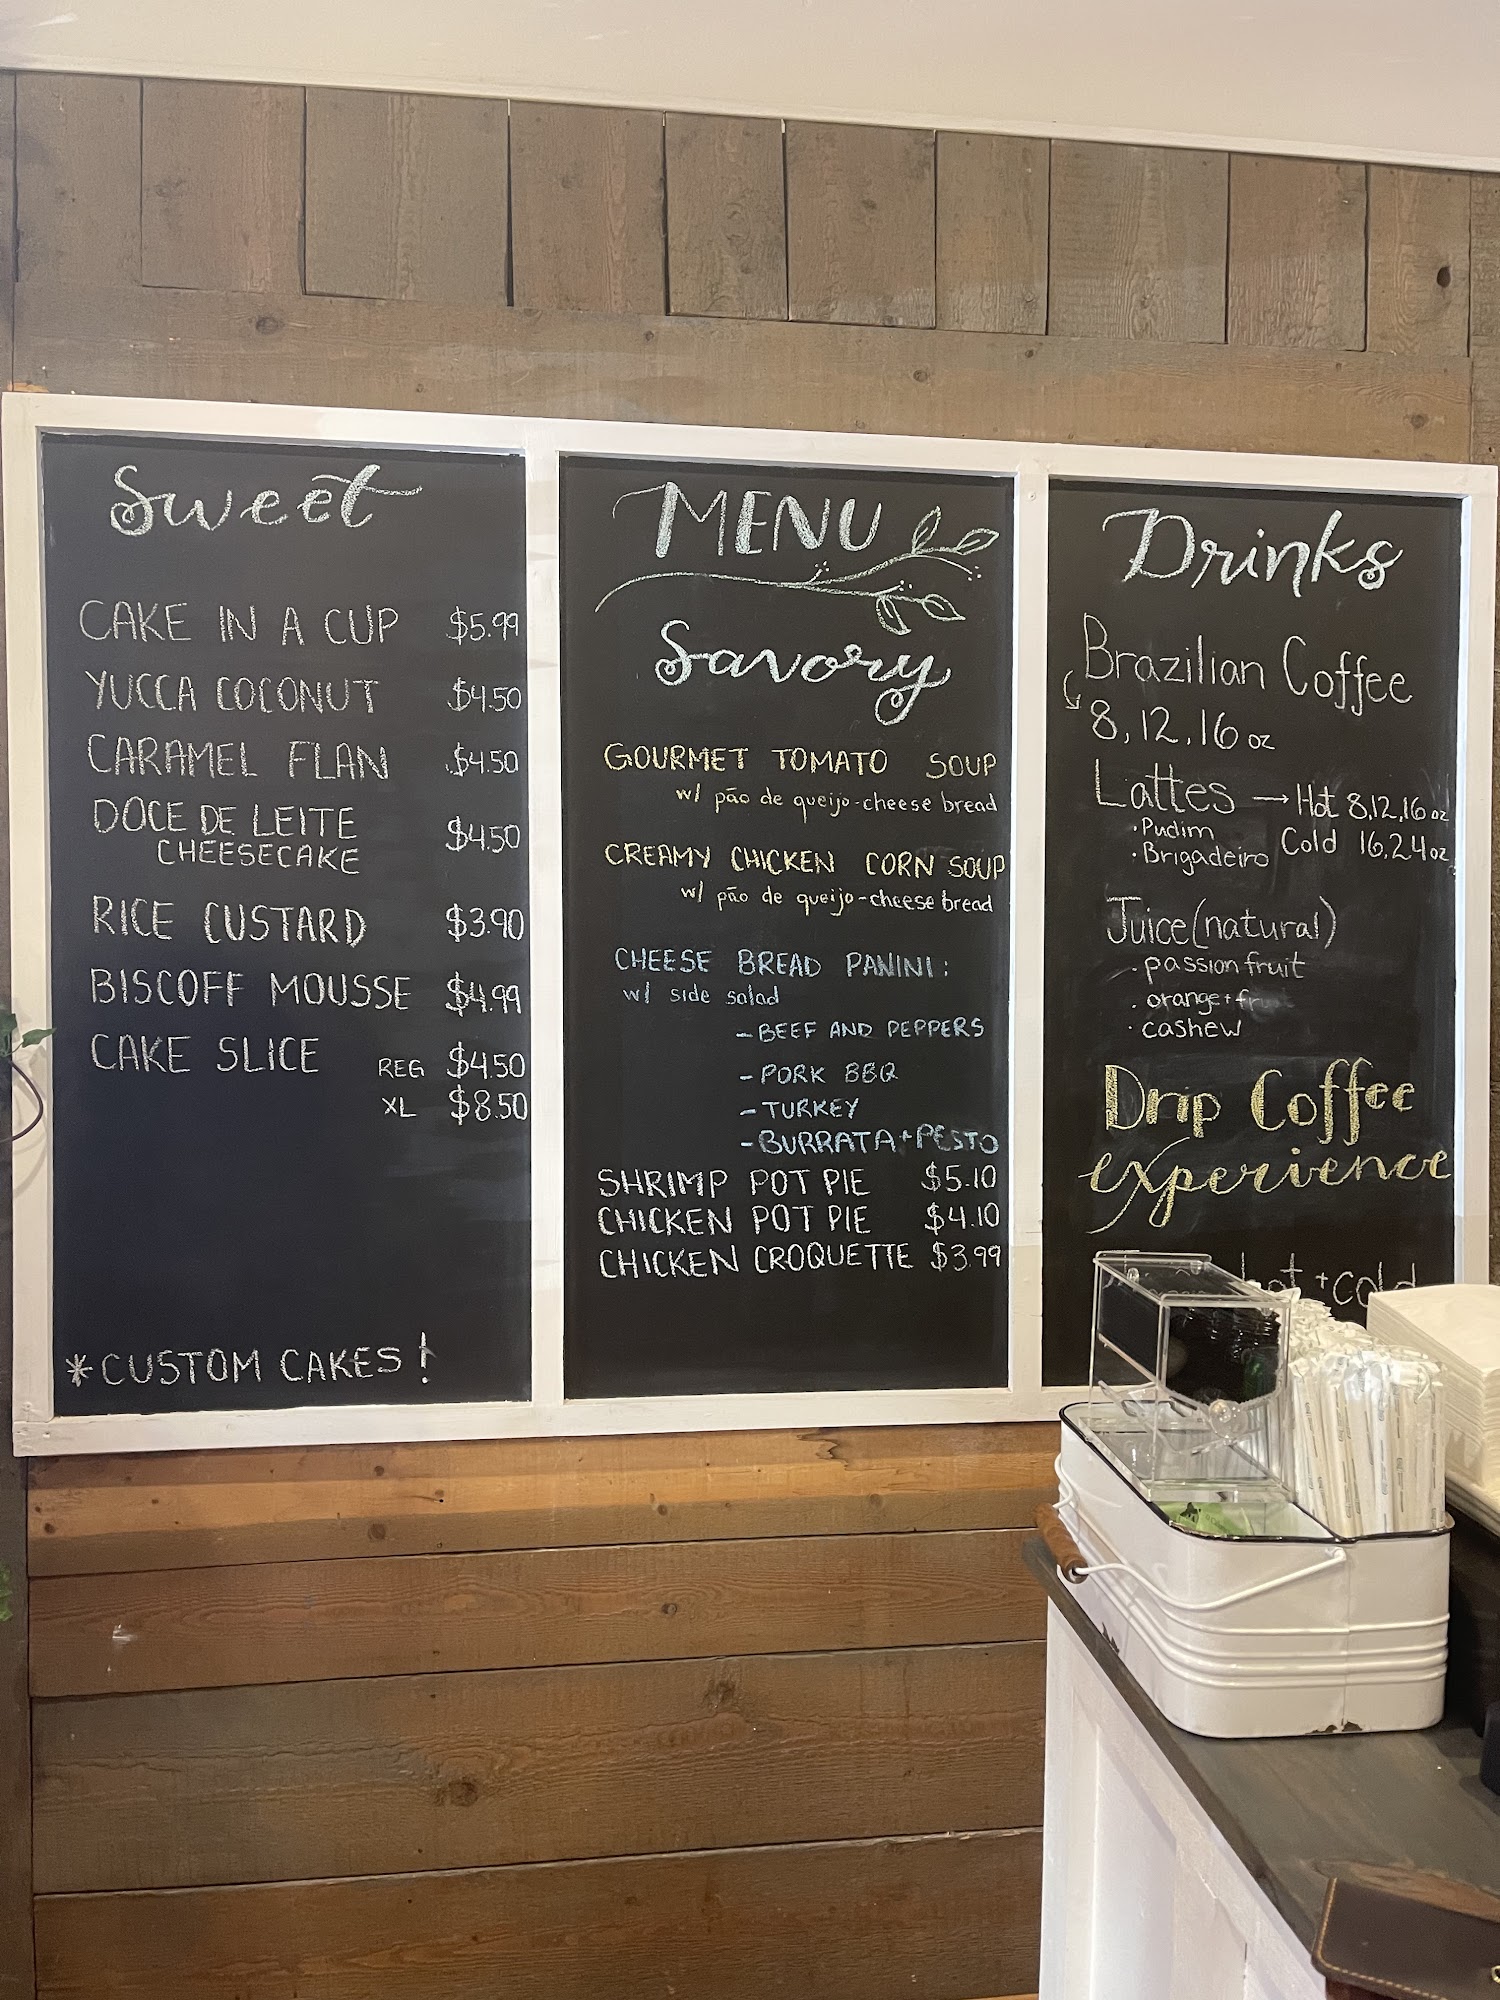 Sweet
CAKE IN A CUP $5.99
YUCCA COCONUT $4.50
CARAMEL FLAN $4.50
DOCE DE LEITE
CHEESECAKE $4.50
RICE CUSTARD $3.90
BISCOFF MOUSSE $4.99
CAKE SLICE REG $4.50
XL $8.50
*CUSTOM CAKES!
MENU
Savory
GOURMET TOMATO SOUP
w/ pão de queijo-cheese bread
CREAMY CHICKEN CORN SOUP
w/ pão de queijo-cheese bread
CHEESE BREAD PANINI:
w/ side salad
- BEEF AND PEPPERS
- PORK BBQ
- TURKEY
- BURRATA + PESTO
SHRIMP POT PIE $5.10
CHICKEN POT PIE $4.10
CHICKEN CROQUETTE $3.99
Drinks
Brazilian Coffee
8, 12, 16 oz
Lattes → Hot 8,12,16 oz
· Pudim
· Brigadeiro Cold 16,24 oz
Juice (natural)
· passion fruit
· orange +
· cashew
Drip Coffee
experience
hot + cold